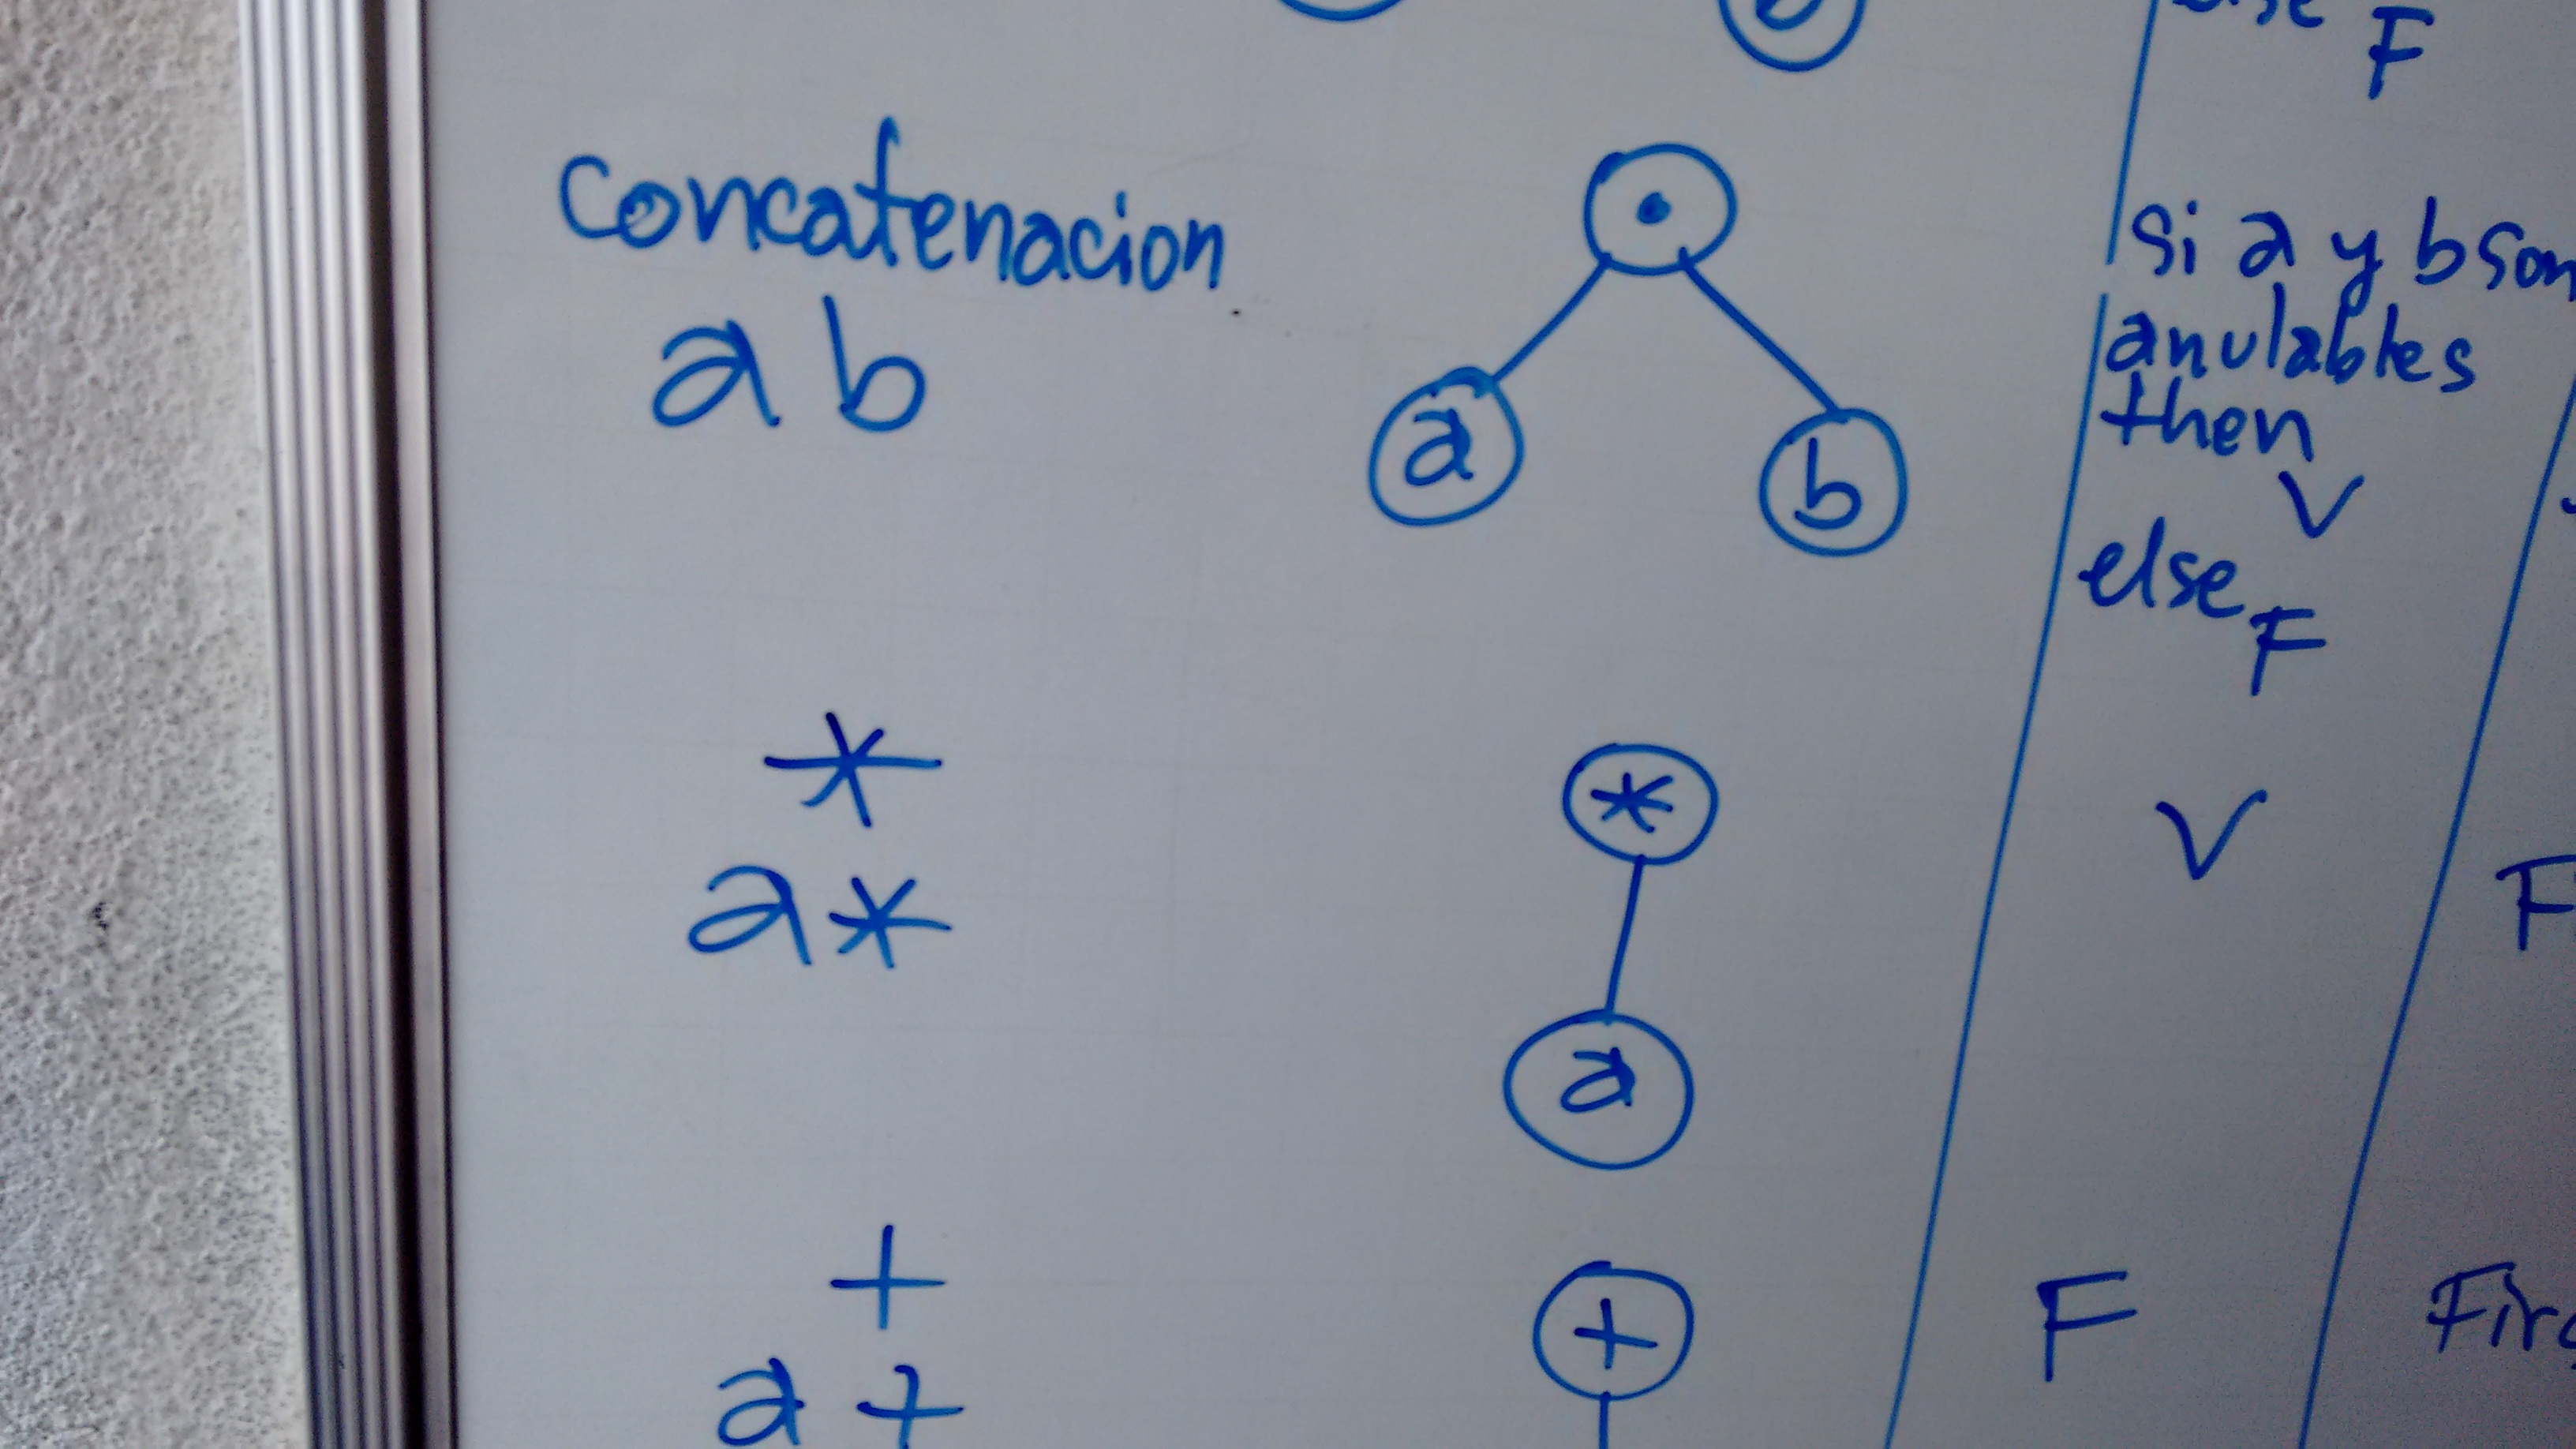 F
concatenacion
a b
•
a
b
si a y b son
anulables
then
V
else
F
*
a*
*
a
V
+
a +
+
F